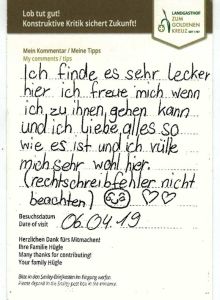 Lob tut gut!
Konstruktive Kritik sichert Zukunft!
LANDGASTHOF
ZUM
GOLDENEN
KREUZ
Mein Kommentar / Meine Tipps
My comments / tips
Ich finde es sehr lecker
hier ich freue mich wenn
ich zu ihnen gehen kann
und ich Liebe alles so
wie es ist und ich vülle
mich sehr wohl hier.
(rechtschreibfehler nicht
beachten)
Besuchsdatum
Date of visit
06.04.19
Herzlichen Dank fürs Mitmachen!
Ihre Familie Hügle
Many thanks for contributing!
Your family Hügle
Bitte in den Smiley-Briefkasten im Eingang werfen.
Please deposit in the Smiley post box in the entrance.